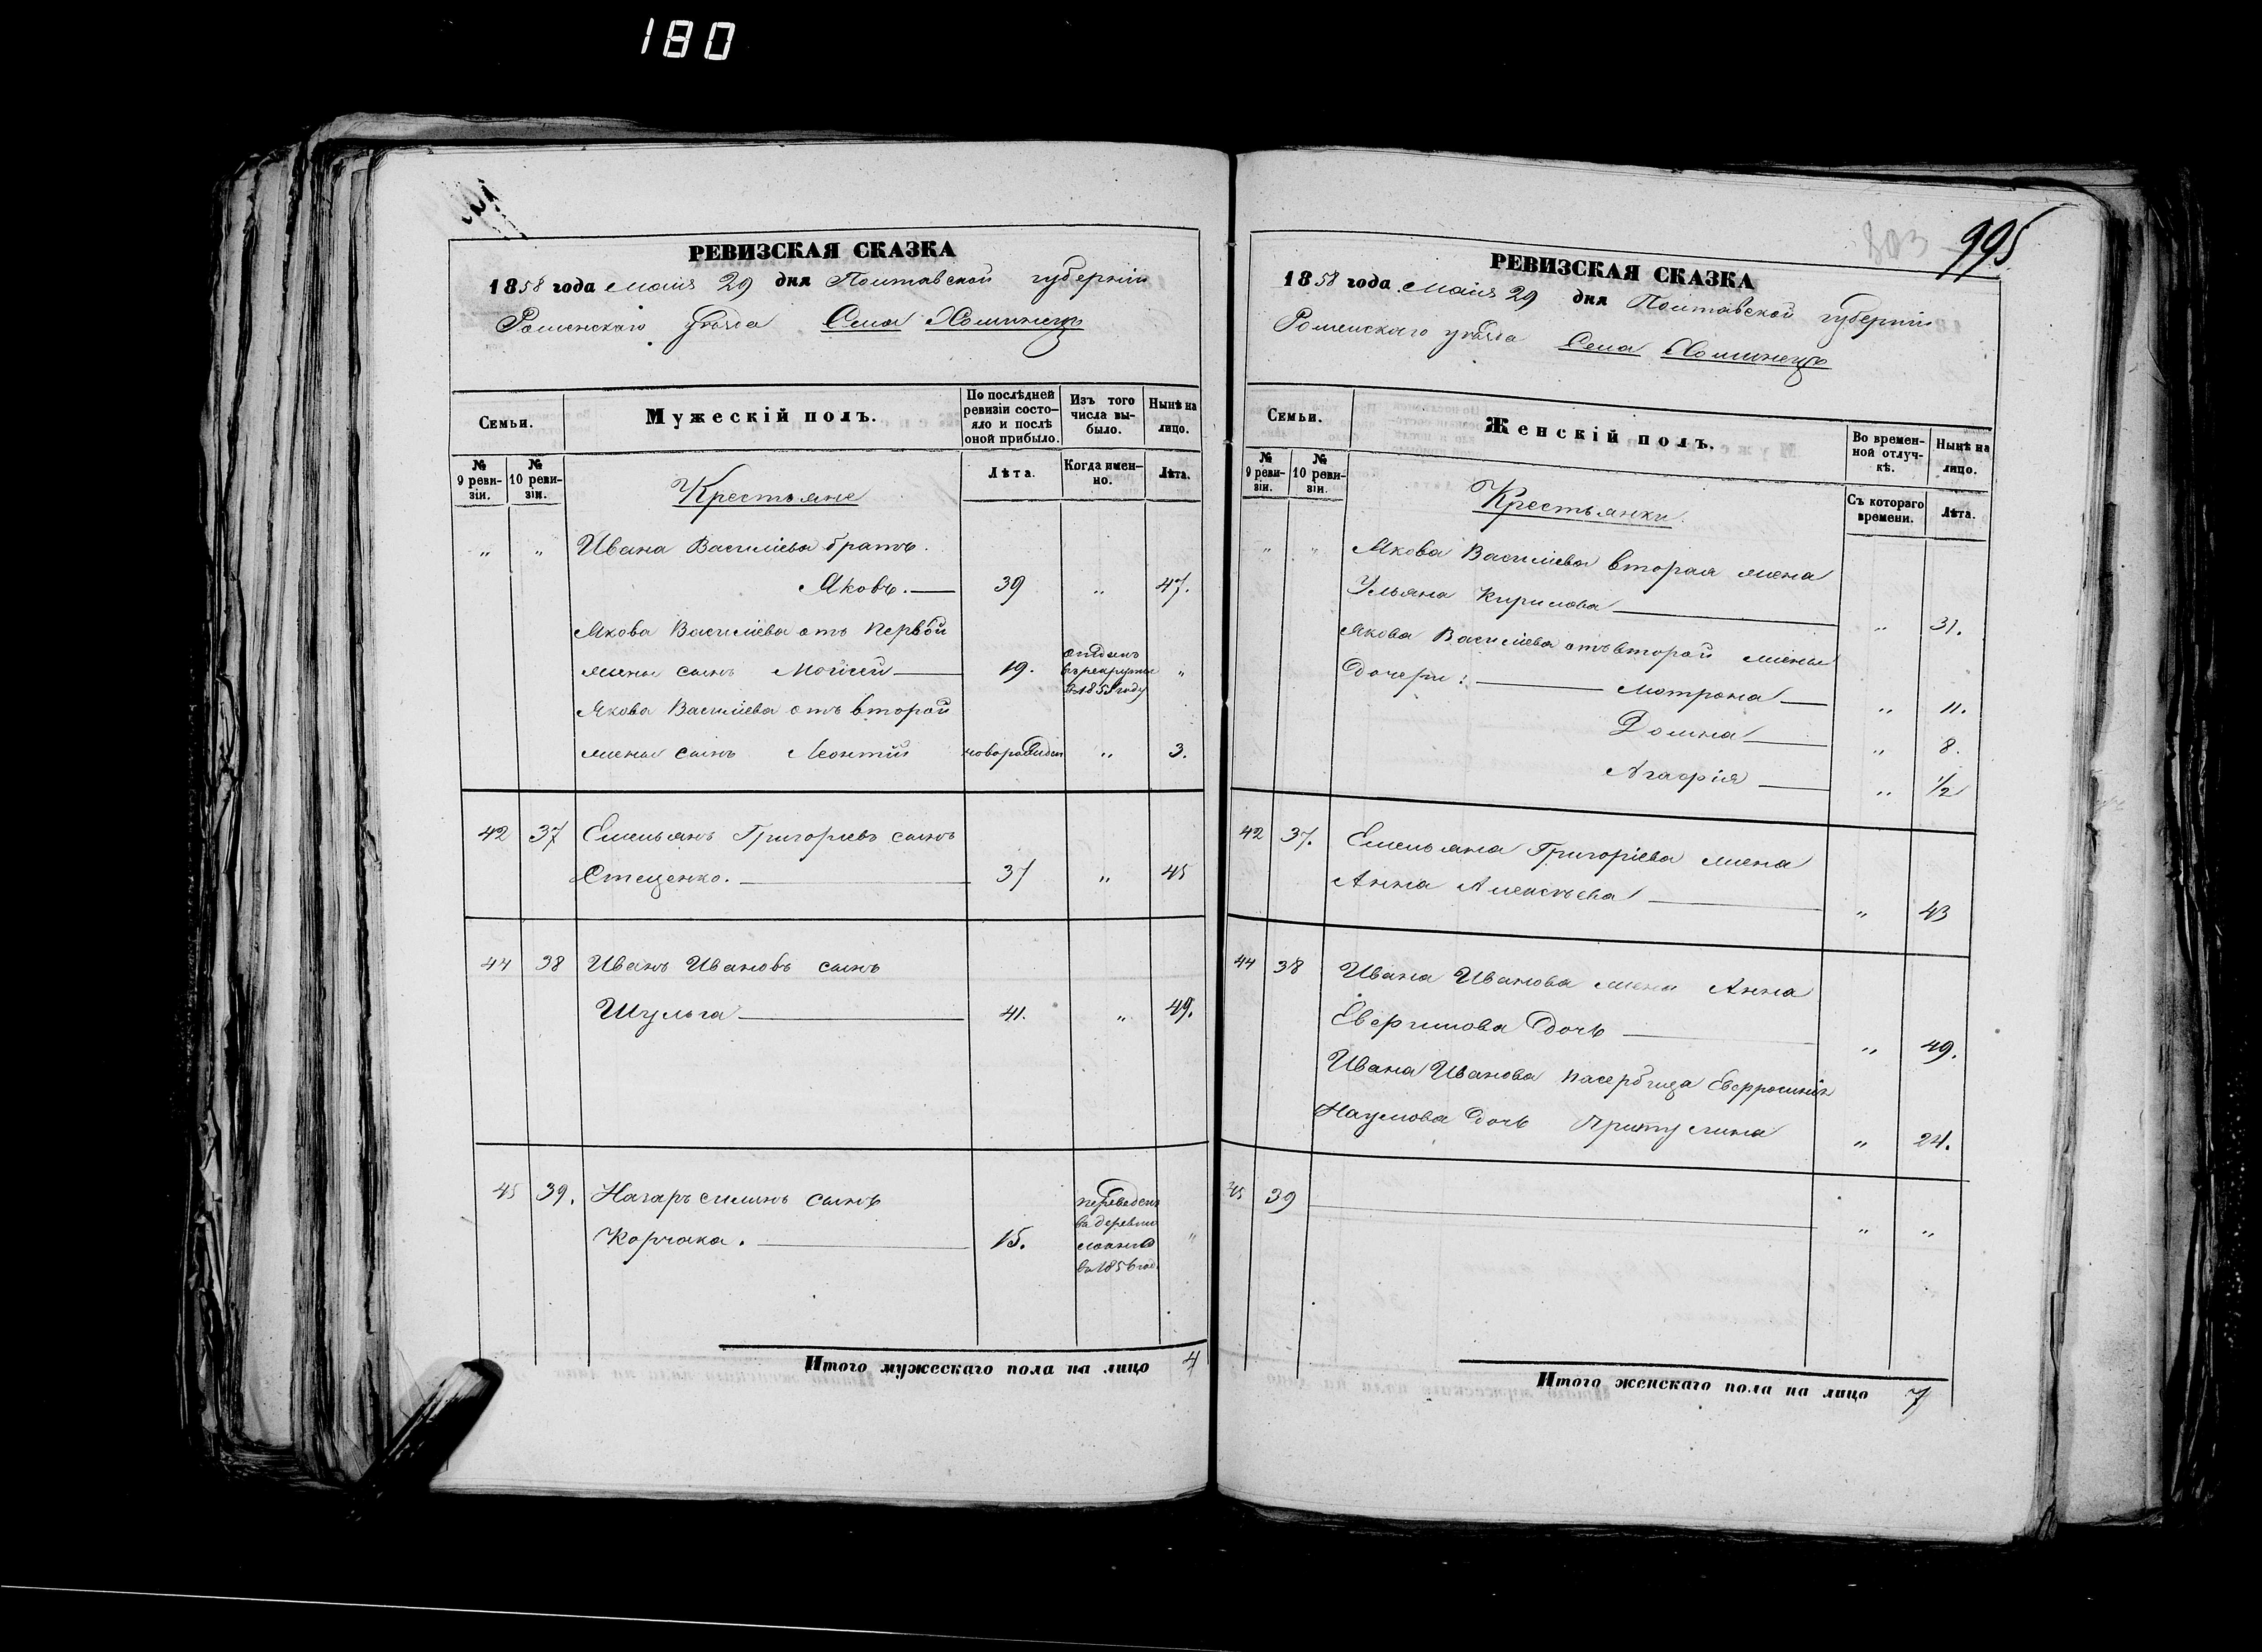 180
РЕВИЗСКАЯ СКАЗКА
1858 года Маія 29 дня Полтавской губерніи
Роменскаго уѣзда Села Хоминецъ
Семьи.
Мужескій полъ.
По послѣдней ревизіи состо-
яло и послѣ
оной прибыло.
Изъ того
числа вы-
было.
Нынѣ на
лицо.
№
9 реви-
зіи.
№
10 реви-
зіи.
Лѣта.
Когда имен-
но.
Лѣта.
Крестьяне
„ „ Ивана Васильева братъ.
Яковъ. — 39 „ 47.
Якова Васильева отъ первой
жены сынъ Мойсей — 19. отданъ въ рекруты въ 1855 году „
Якова Васильева отъ второй
жены сынъ Леонтій новорожден „ 3.
42 37 Емельянъ Григорьевъ сынъ
Стеценко. — 37 „ 45
44 38 Иванъ Ивановъ сынъ
Шульга — 41. „ 49.
45 39. Назаръ Силинъ сынъ
Корчака. — 15. переведенъ въ деревню въ 1856 год. „
Итого мужескаго пола на лицо 4
803 995
РЕВИЗСКАЯ СКАЗКА
1858 года Маія 29 дня Полтавской губерніи
Роменскаго уѣзда Села Хоминецъ
Семьи.
Женскій полъ.
Во времен-
ной отлуч-
кѣ.
Нынѣ на
лицо.
№
9 реви-
зіи.
№
10 реви-
зіи.
Съ котораго
времени.
Лѣта.
Крестьянки.
„ „ Якова Васильева вторая жена
Ульяна Кирилова — „ 31.
Якова Васильева отъ второй жены
дочери: — Мотрона — „ 11.
Домна — „ 8.
Агафія — „ 1/2
42 37. Емельяна Григоріева жена
Анна Алексѣева — „ 43
44 38 Ивана Иванова жена Анна
дочь — „ 49.
Ивана Иванова пасербица Евфросинія
Наумова дочь Притулина „ 24.
45 39 — „ „
Итого женскаго пола на лицо 7